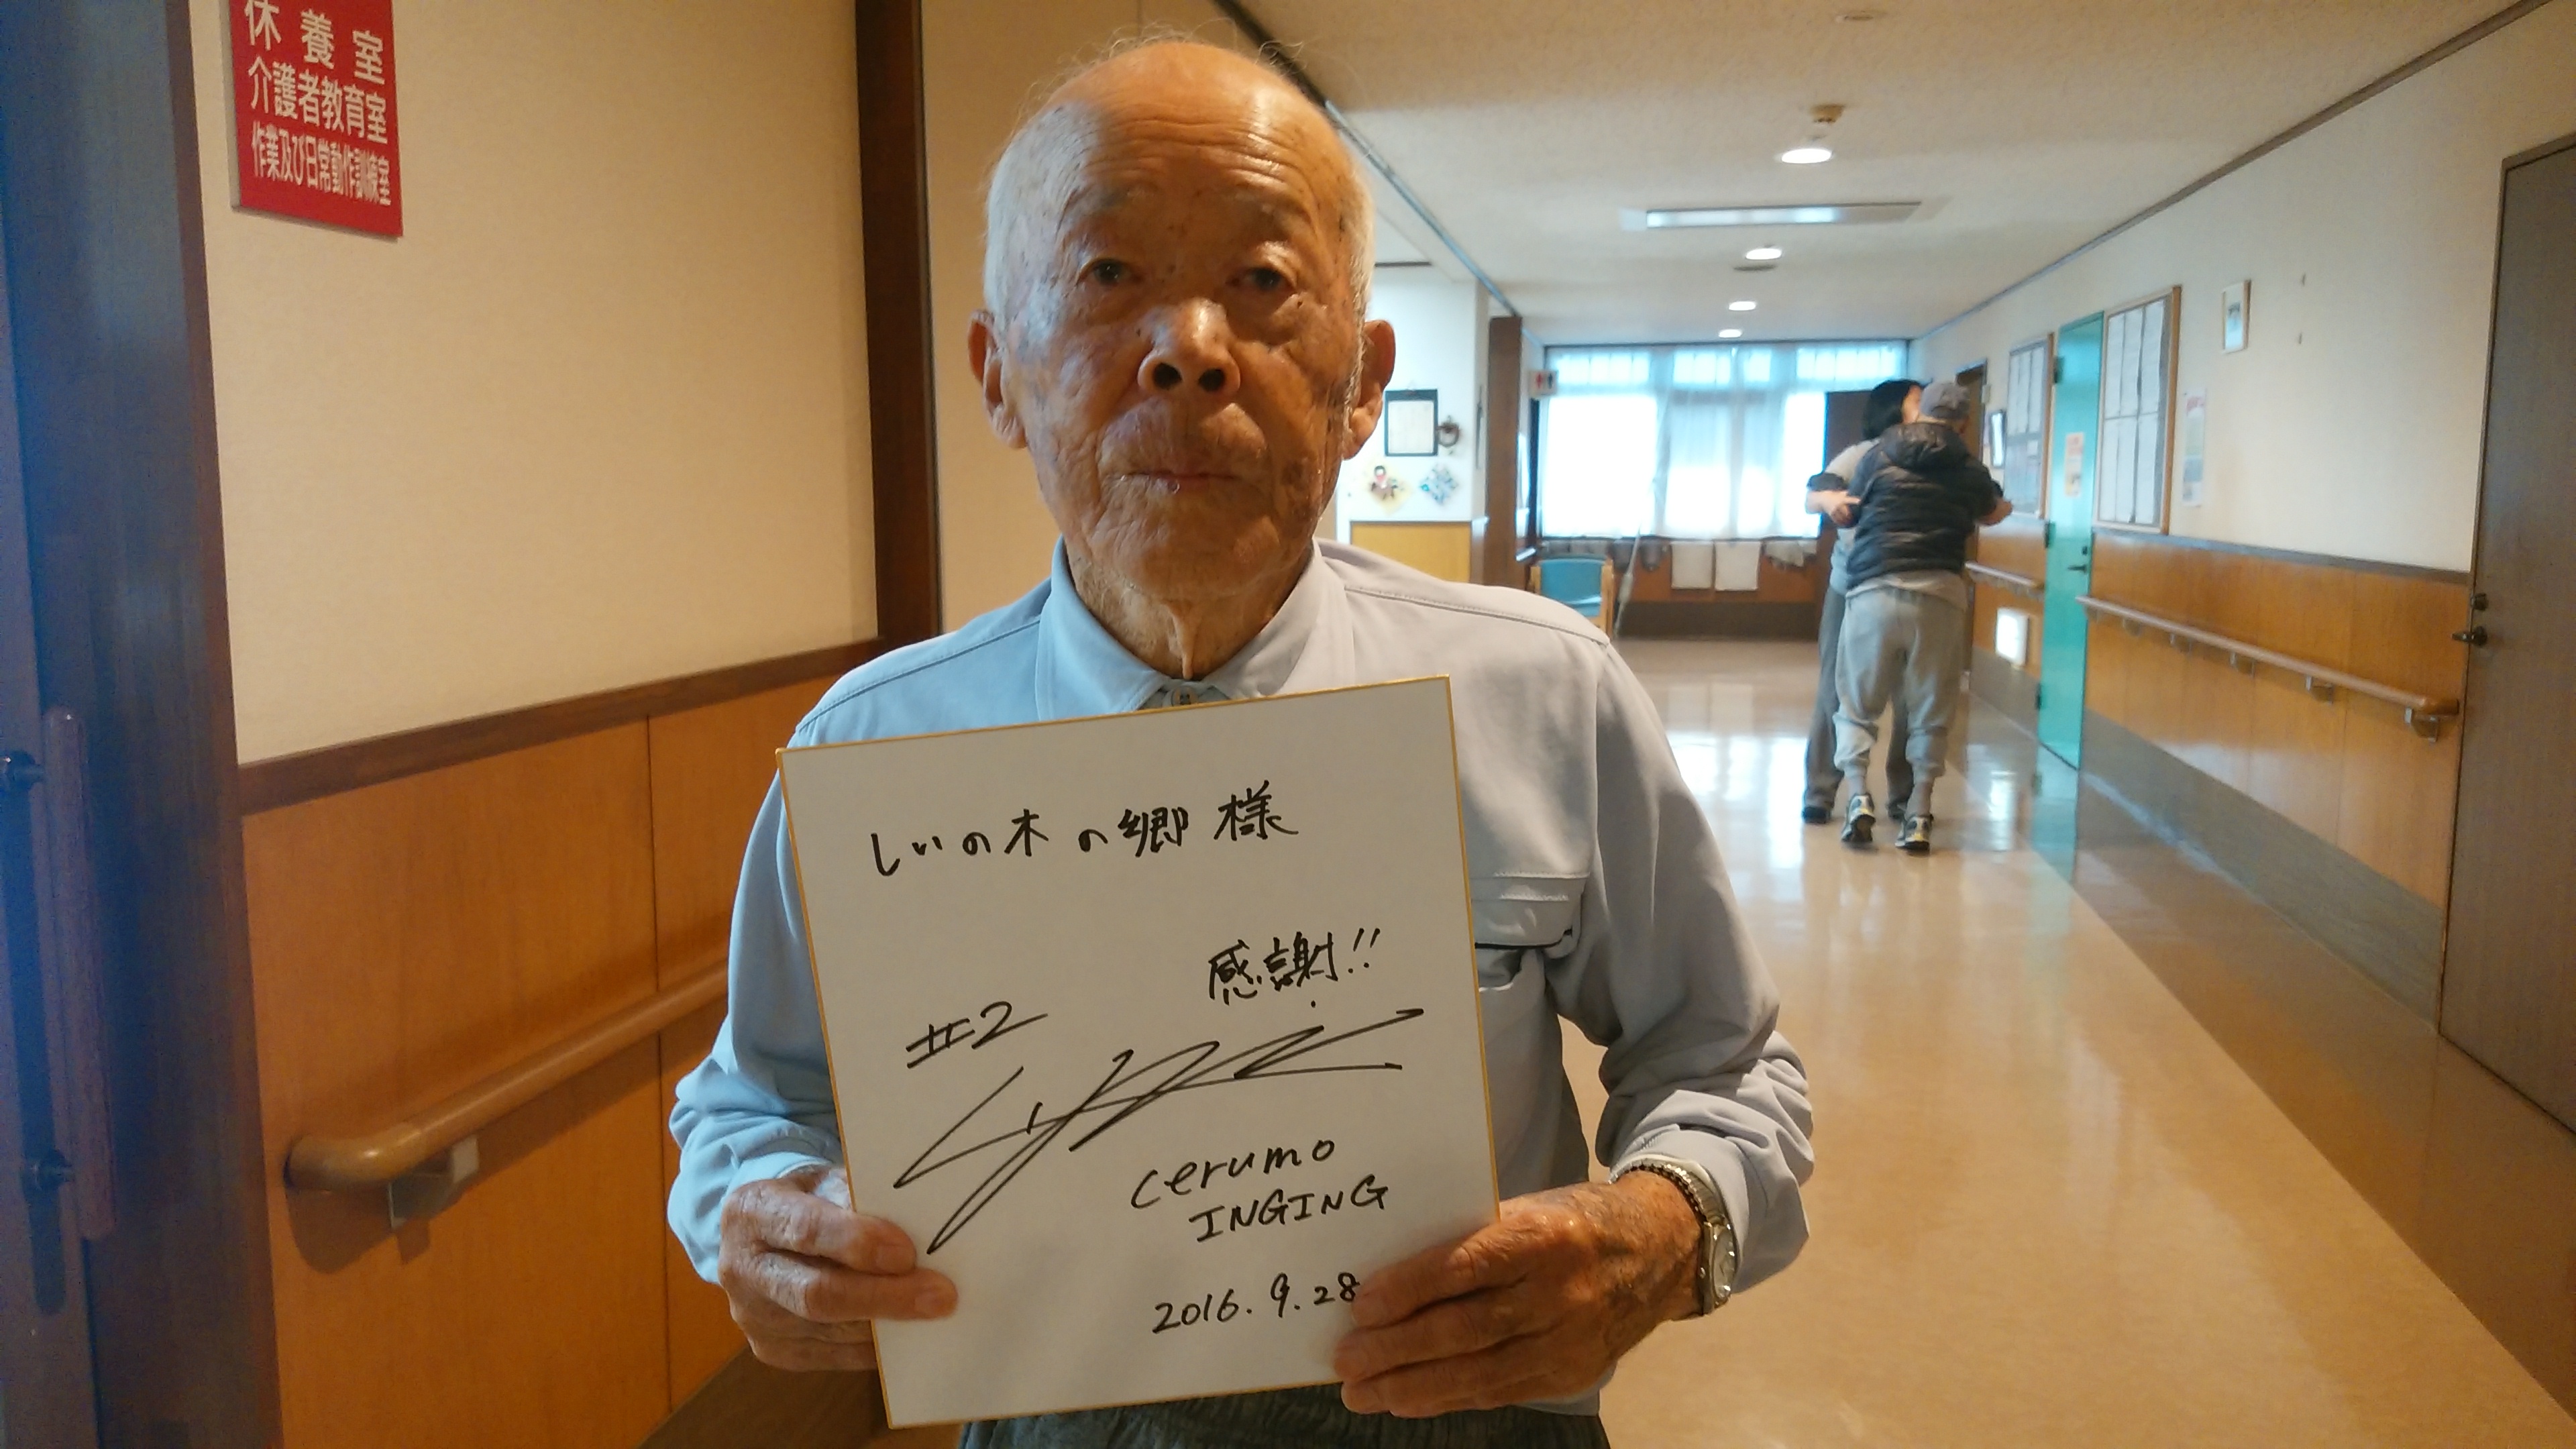 休養室
介護者教育室
作業及び日常動作訓練室
しいの木の郷 様
感謝!!
#2
cerumo
INGING
2016.9.28